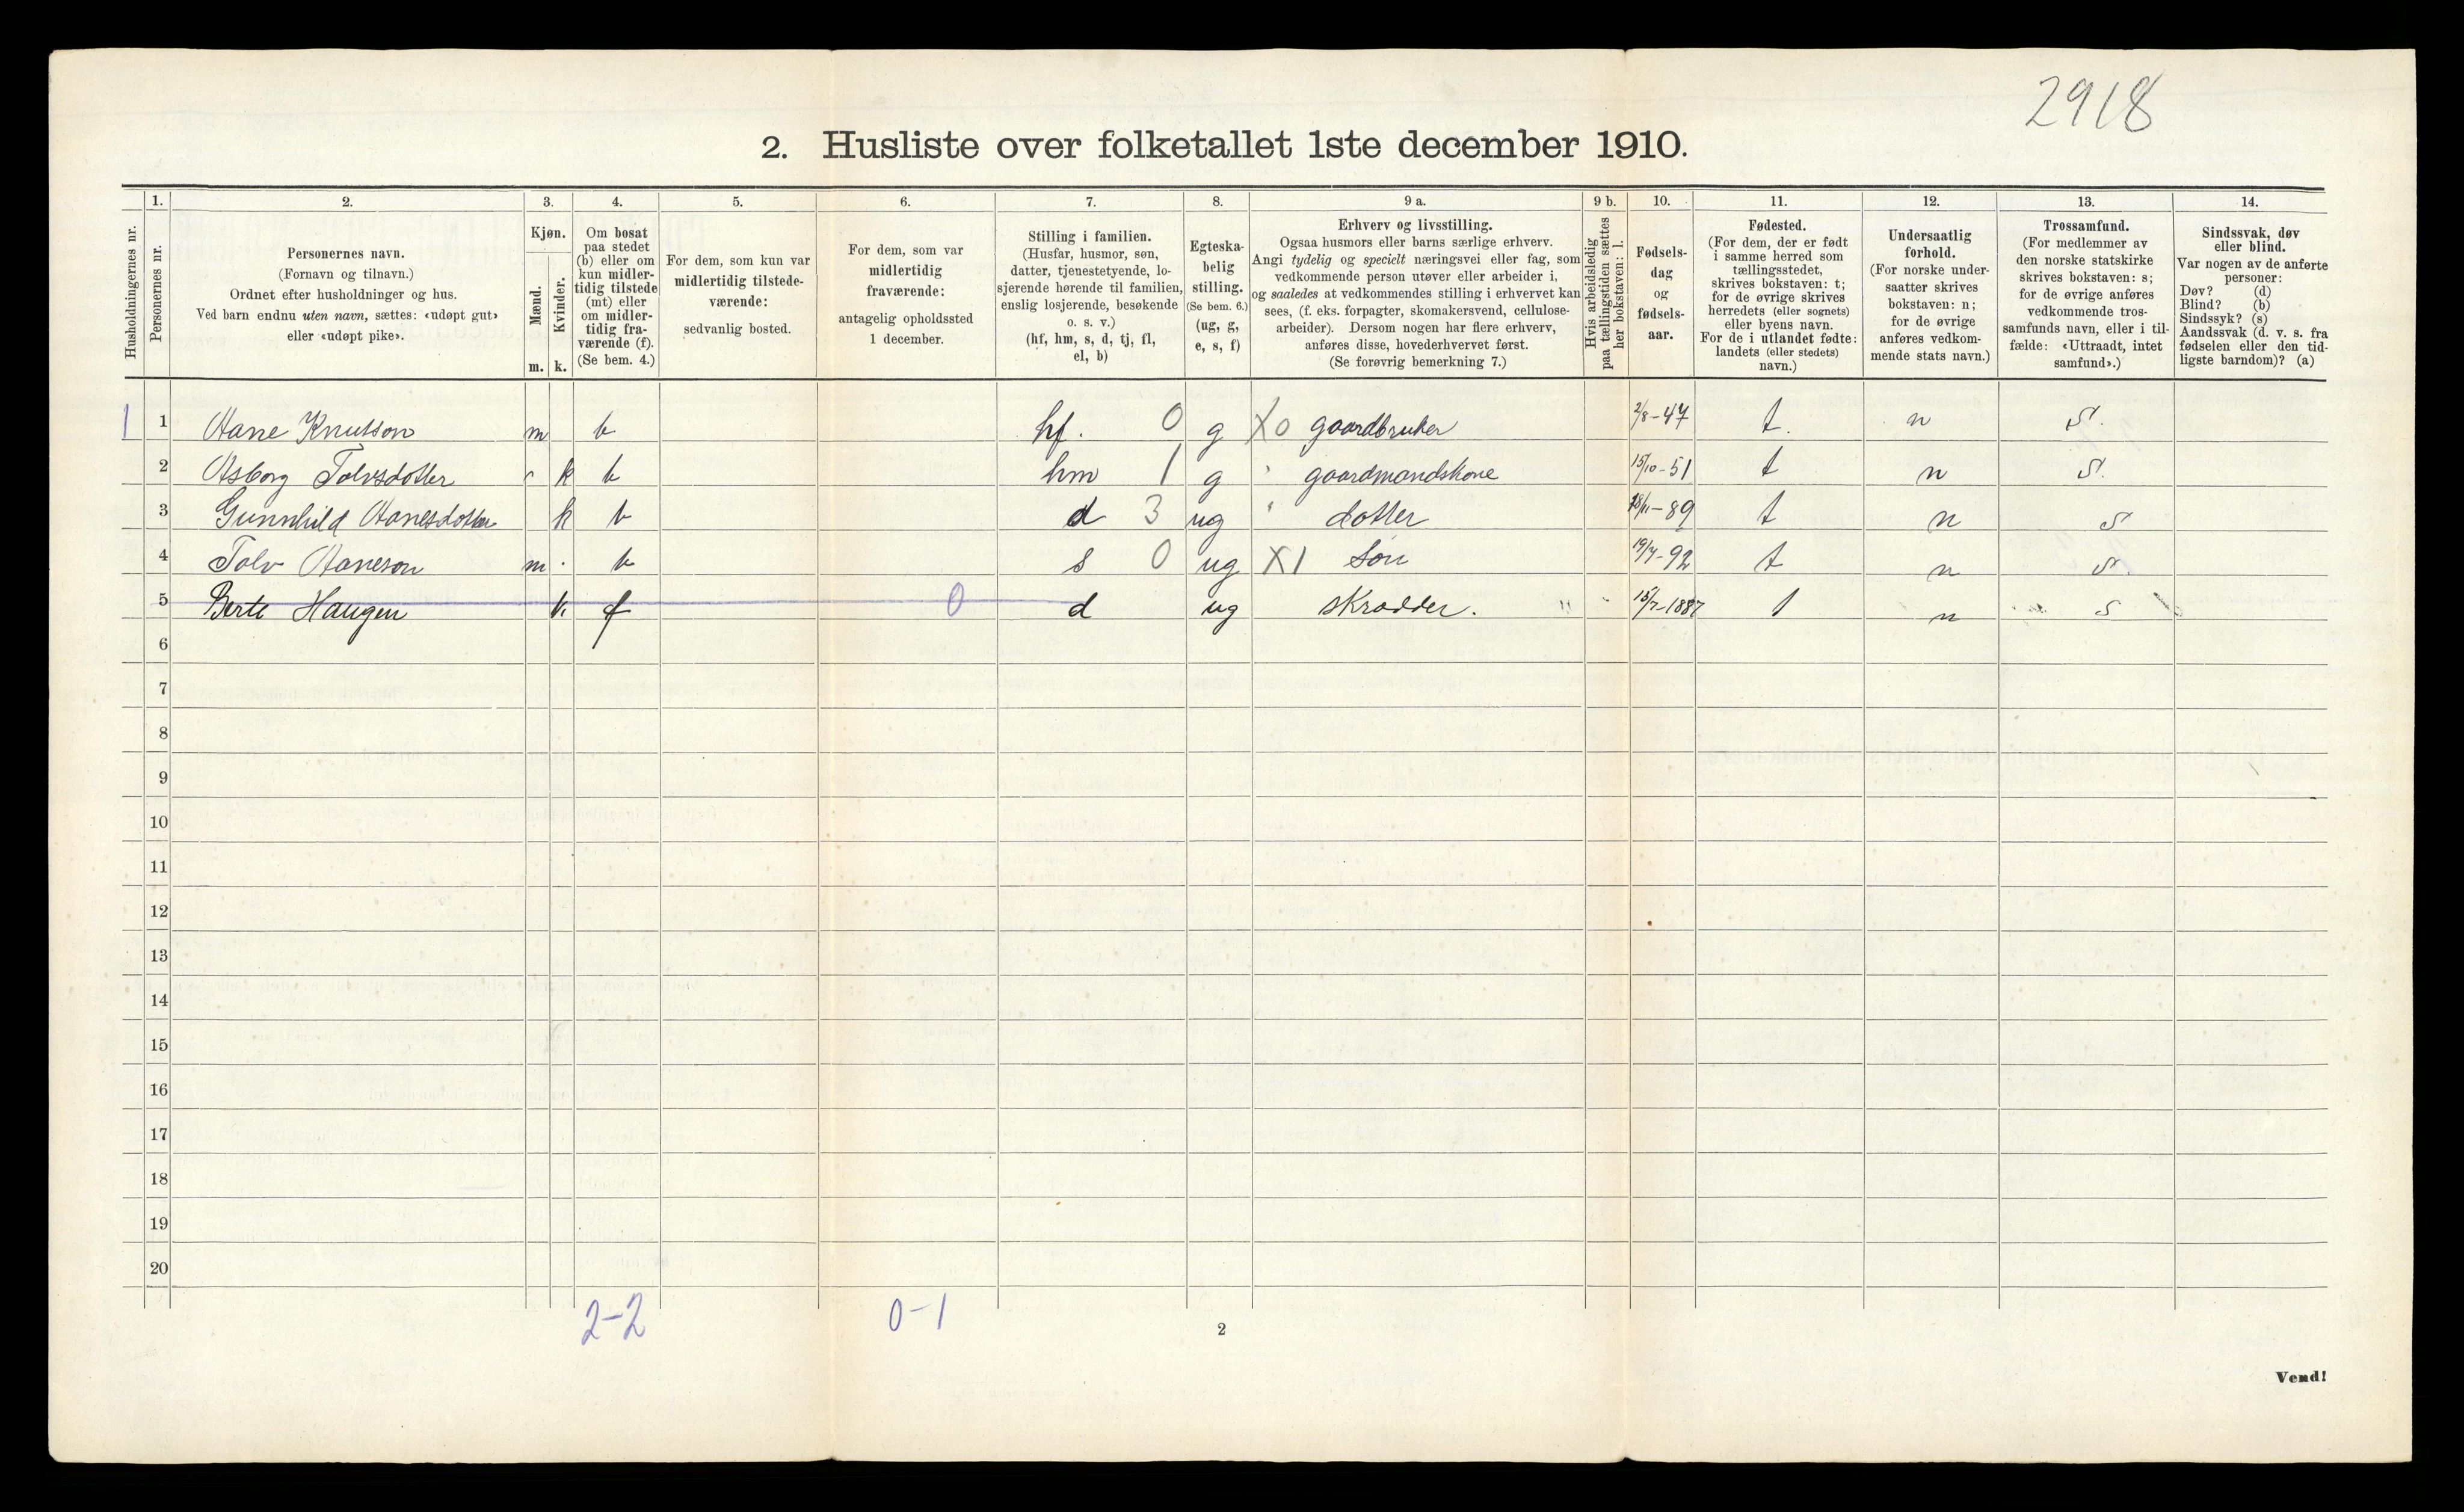 2918
2. Husliste over folketallet 1ste december 1910.
1. 2. 3. 4. 5. 6. 7. 8. 9 a. 9 b. 10. 11. 12. 13. 14.
Husholdningernes nr.
Personernes nr.
Personernes navn.
(Fornavn og tilnavn.)
Ordnet efter husholdninger og hus.
Ved barn endnu uten navn, sættes: «udøpt gut»
eller «udøpt pike».
Kjøn.
Mænd.
Kvinder.
m. k.
Om bosat
paa stedet
(b) eller om
kun midler-
tidig tilstede
(mt) eller
om midler-
tidig fra-
værende (f).
(Se bem. 4.)
For dem, som kun var
midlertidig tilstede-
værende:
sedvanlig bosted.
For dem, som var
midlertidig
fraværende:
antagelig opholdssted
1 december.
Stilling i familien.
(Husfar, husmor, søn,
datter, tjenestetyende, lo-
sjerende hørende til familien,
enslig losjerende, besøkende
o. s. v.)
(hf, hm, s, d, tj, fl,
el, b)
Egteska-
belig
stilling.
(Se bem. 6.)
(ug, g,
e, s, f)
Erhverv og livsstilling.
Ogsaa husmors eller barns særlige erhverv.
Angi tydelig og specielt næringsvei eller fag, som
vedkommende person utøver eller arbeider i,
og saaledes at vedkommendes stilling i erhvervet kan
sees, (f. eks. forpagter, skomakersvend, cellulose-
arbeider). Dersom nogen har flere erhverv,
anføres disse, hovederhvervet først.
(Se forøvrig bemerkning 7.)
Hvis arbeidsledig
paa tællingstiden sættes
her bokstaven: l.
Fødsels-
dag
og
fødsels-
aar.
Fødested.
(For dem, der er født
i samme herred som
tællingsstedet,
skrives bokstaven: t;
for de øvrige skrives
herredets (eller sognets)
eller byens navn.
For de i utlandet fødte:
landets (eller stedets)
navn.)
Undersaatlig
forhold.
(For norske under-
saatter skrives
bokstaven: n;
for de øvrige
anføres vedkom-
mende stats navn.)
Trossamfund.
(For medlemmer av
den norske statskirke
skrives bokstaven: s;
for de øvrige anføres
vedkommende tros-
samfunds navn, eller i til-
fælde: «Uttraadt, intet
samfund».)
Sindssvak, døv
eller blind.
Var nogen av de anførte
personer:
Døv? (d)
Blind? (b)
Sindssyk? (s)
Aandssvak (d. v. s. fra
fødselen eller den tid-
ligste barndom)? (a)
1 1 Aane Knutson m b hf. 0 g X0 gaardbruker 2/8-47 t. n S.
2 Asborg Tolvsdotter k b hm 1 g " gaardmandskone 15/10-51 t n S.
3 Gunnhild Aanesdotter k b d 3 ug " dotter 18/11-89 t n S
4 Tolv Aaneson m. b s 0 ug X1 Søn 19/7-92 t n S.
5 Berte Haugen k f 0 d ug skrædder. 15/7-1887 t n S
6
7
8
9
10
11
12
13
14
15
16
17
18
19
20
2-2 0-1
2
Vend!